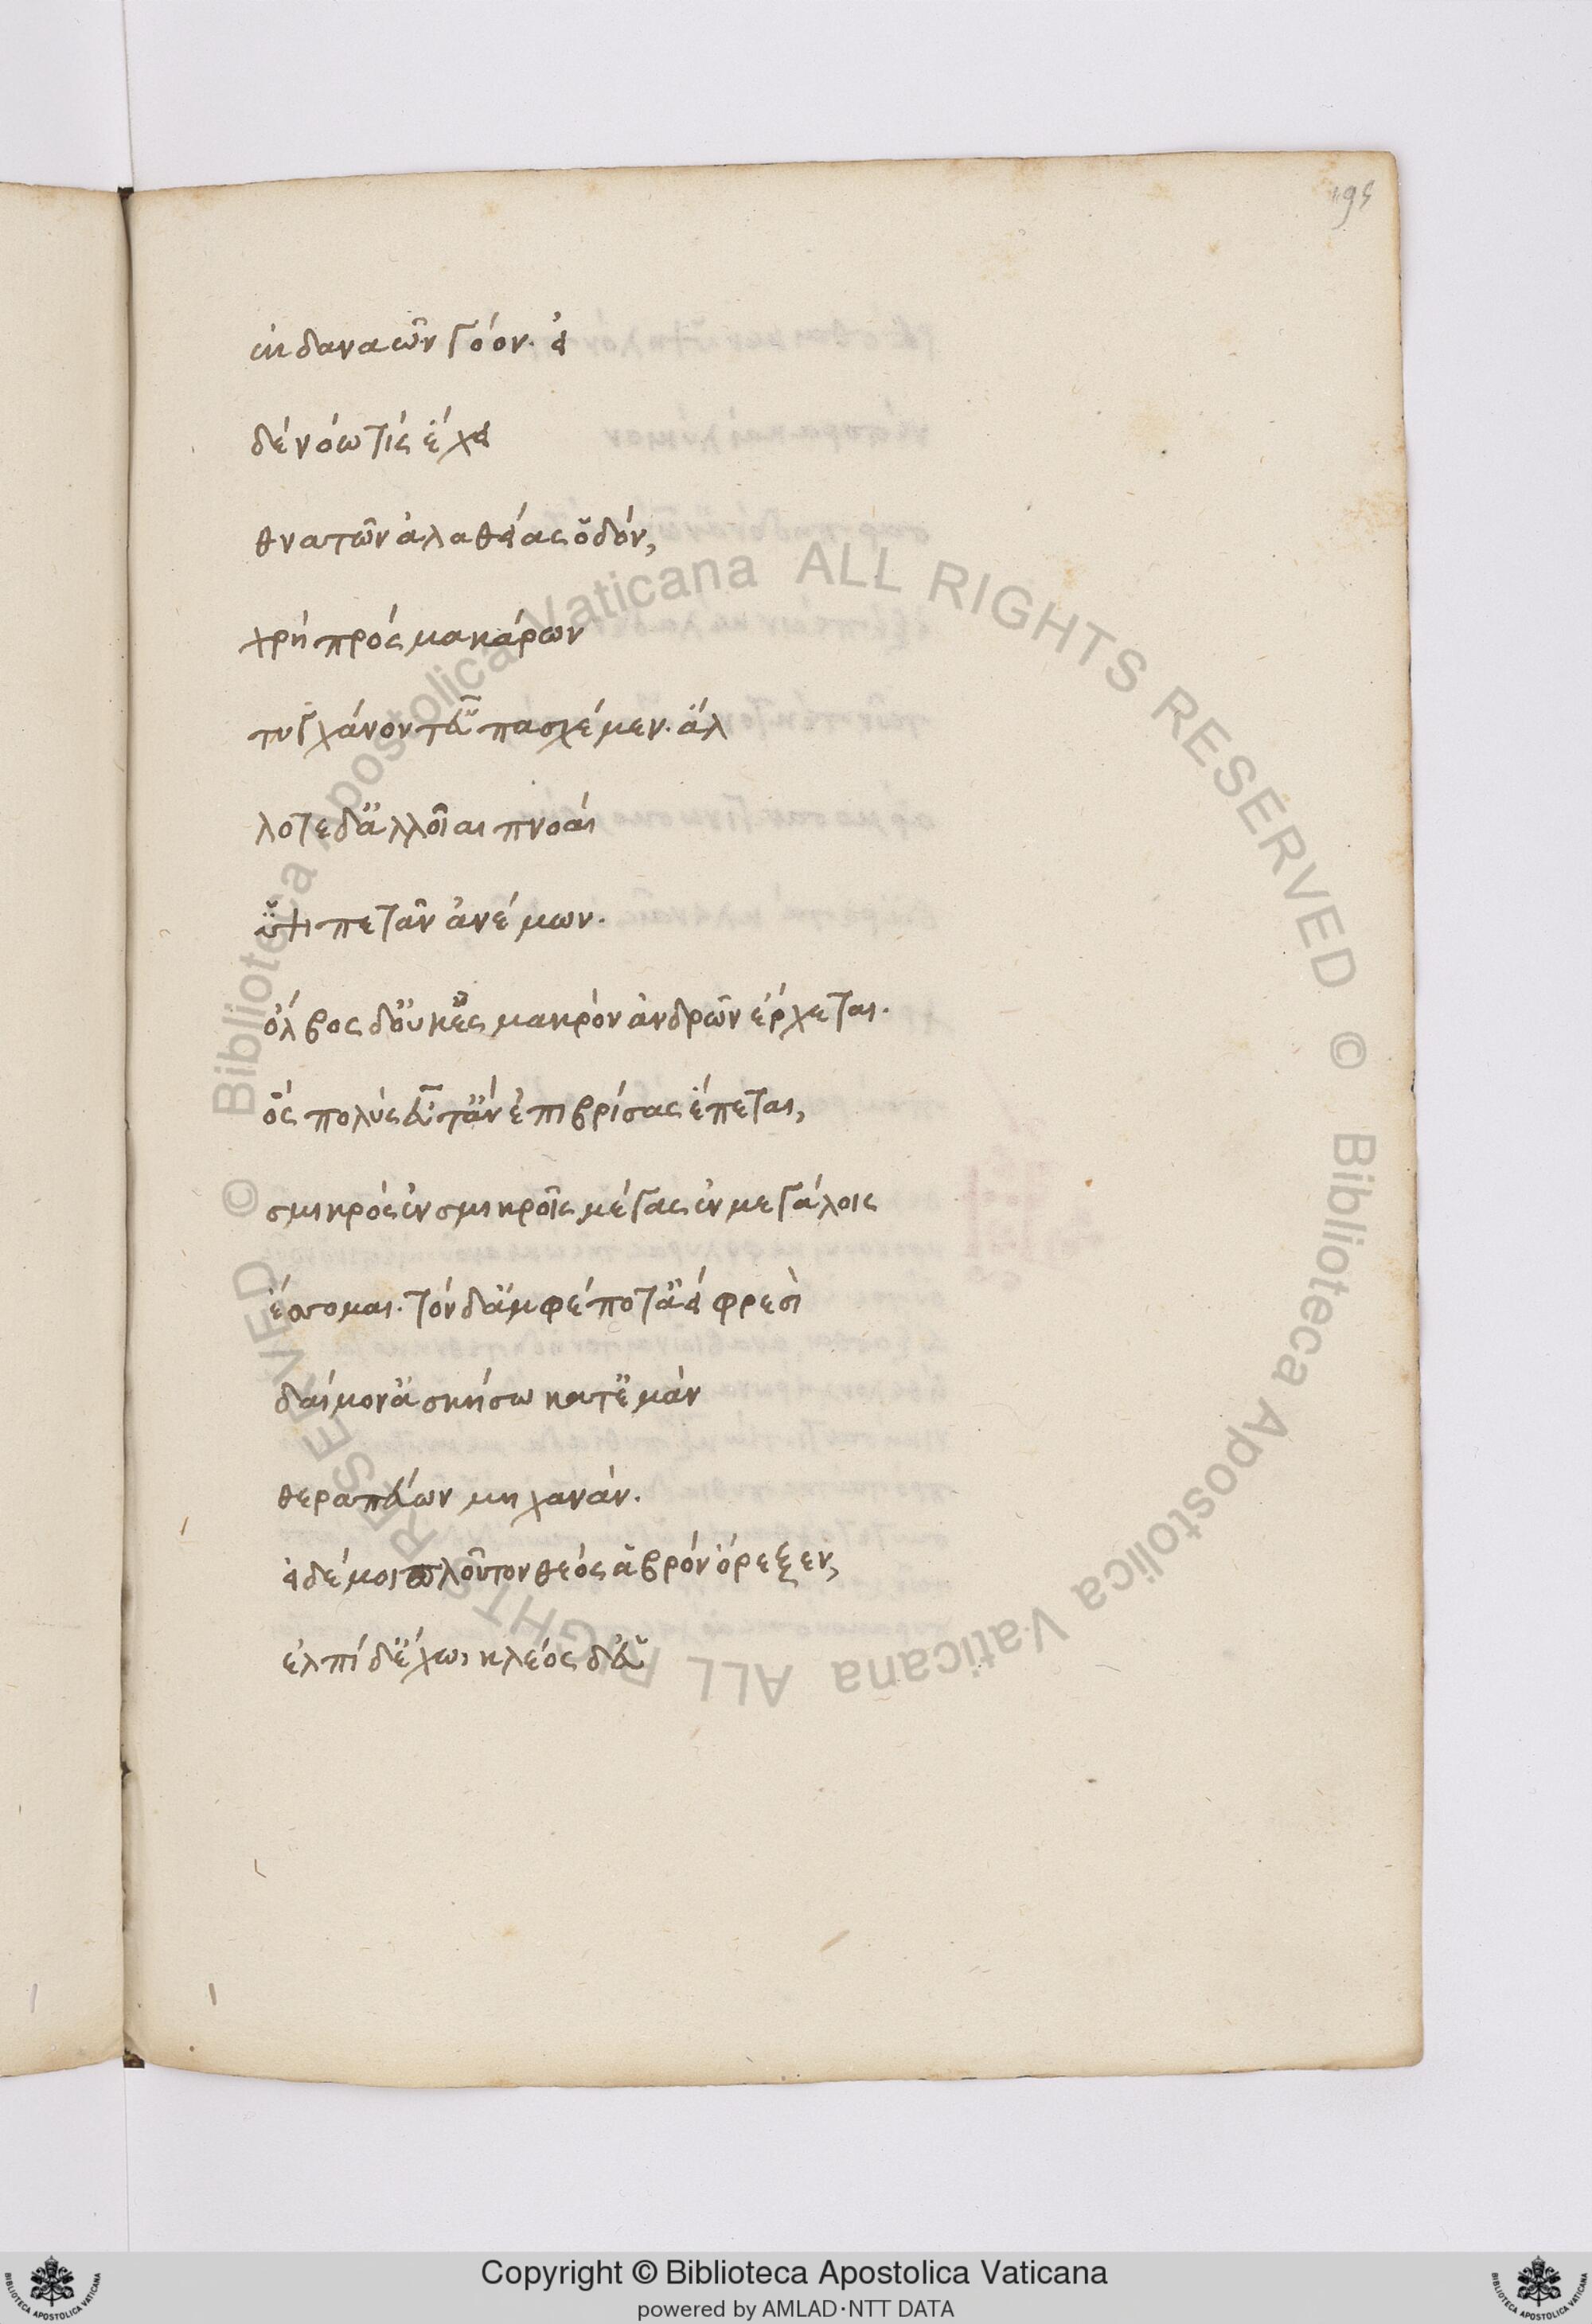 195
ἐκ δαναῶν γόον. εἰ
δὲ νόω τίς ἔχει
θνατῶν ἀλαθείας ὁδόν,
χρὴ πρὸς μακάρων
τυγχάνοντ' εὖ πασχέμεν. ἄλ
λοτε δ' ἀλλοῖαι πνοαί
ὑψιπετᾶν ἀνέμων.
ὄλβος δ' οὐκ ἐς μακρὸν ἀνδρῶν ἔρχεται.
ὃς πολὺς εὖτ' ἂν ἐπιβρίσας ἕπεται,
σμικρὸς ἐν σμικροῖς μέγας ἐν μεγάλοις
ἔσσομαι. τὸν δ' ἀμφέποτ' ἀεὶ φρεσὶ
δαίμον' ἀσκήσω κατ' ἐμὰν
θεραπεύων μηχανάν.
εἰ δέ μοι πλοῦτον θεὸς ἁβρὸν ὄρεξεν,
ἐλπίδ' ἔχω κλέος δ' εὑ
Biblioteca Apostolica Vaticana ALL RIGHTS RESERVED © Biblioteca Apostolica Vaticana ALL RIGHTS RESERVED ©
Copyright © Biblioteca Apostolica Vaticana
powered by AMLAD·NTT DATA
BIBLIOTECA APOSTOLICA VATICANA
BIBLIOTECA APOSTOLICA VATICANA